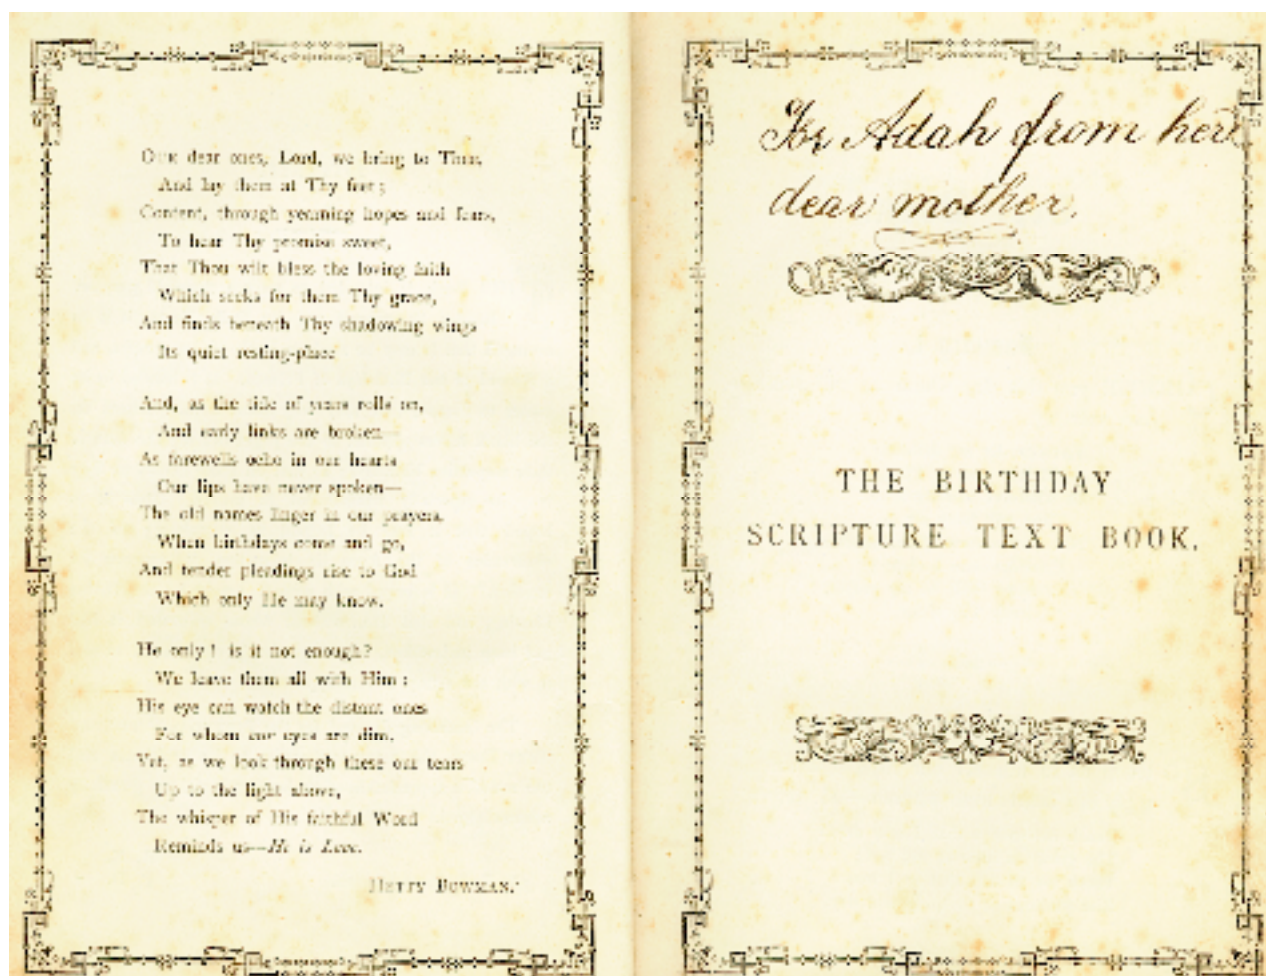 OUR dear ones, Lord, we bring to Thee,
And lay them at Thy feet;
Content, through yearning hopes and fears,
To hear Thy promise sweet,
That Thou wilt bless the loving faith
Which seeks for them Thy grace,
And finds beneath Thy shadowing wings
Its quiet resting-place
And, as the tide of years rolls on,
And early links are broken—
As farewells echo in our hearts
Our lips have never spoken—
The old names linger in our prayers,
When birthdays come and go,
And tender pleadings rise to God
Which only He may know.
He only! is it not enough?
We leave them all with Him;
His eye can watch the distant ones
For whom our eyes are dim.
Yet, as we look through these our tears
Up to the light above,
The whisper of His faithful Word
Reminds us—He is Love.
HETTY BOWMAN.
For Adah from her
dear mother.
THE BIRTHDAY
SCRIPTURE TEXT BOOK.